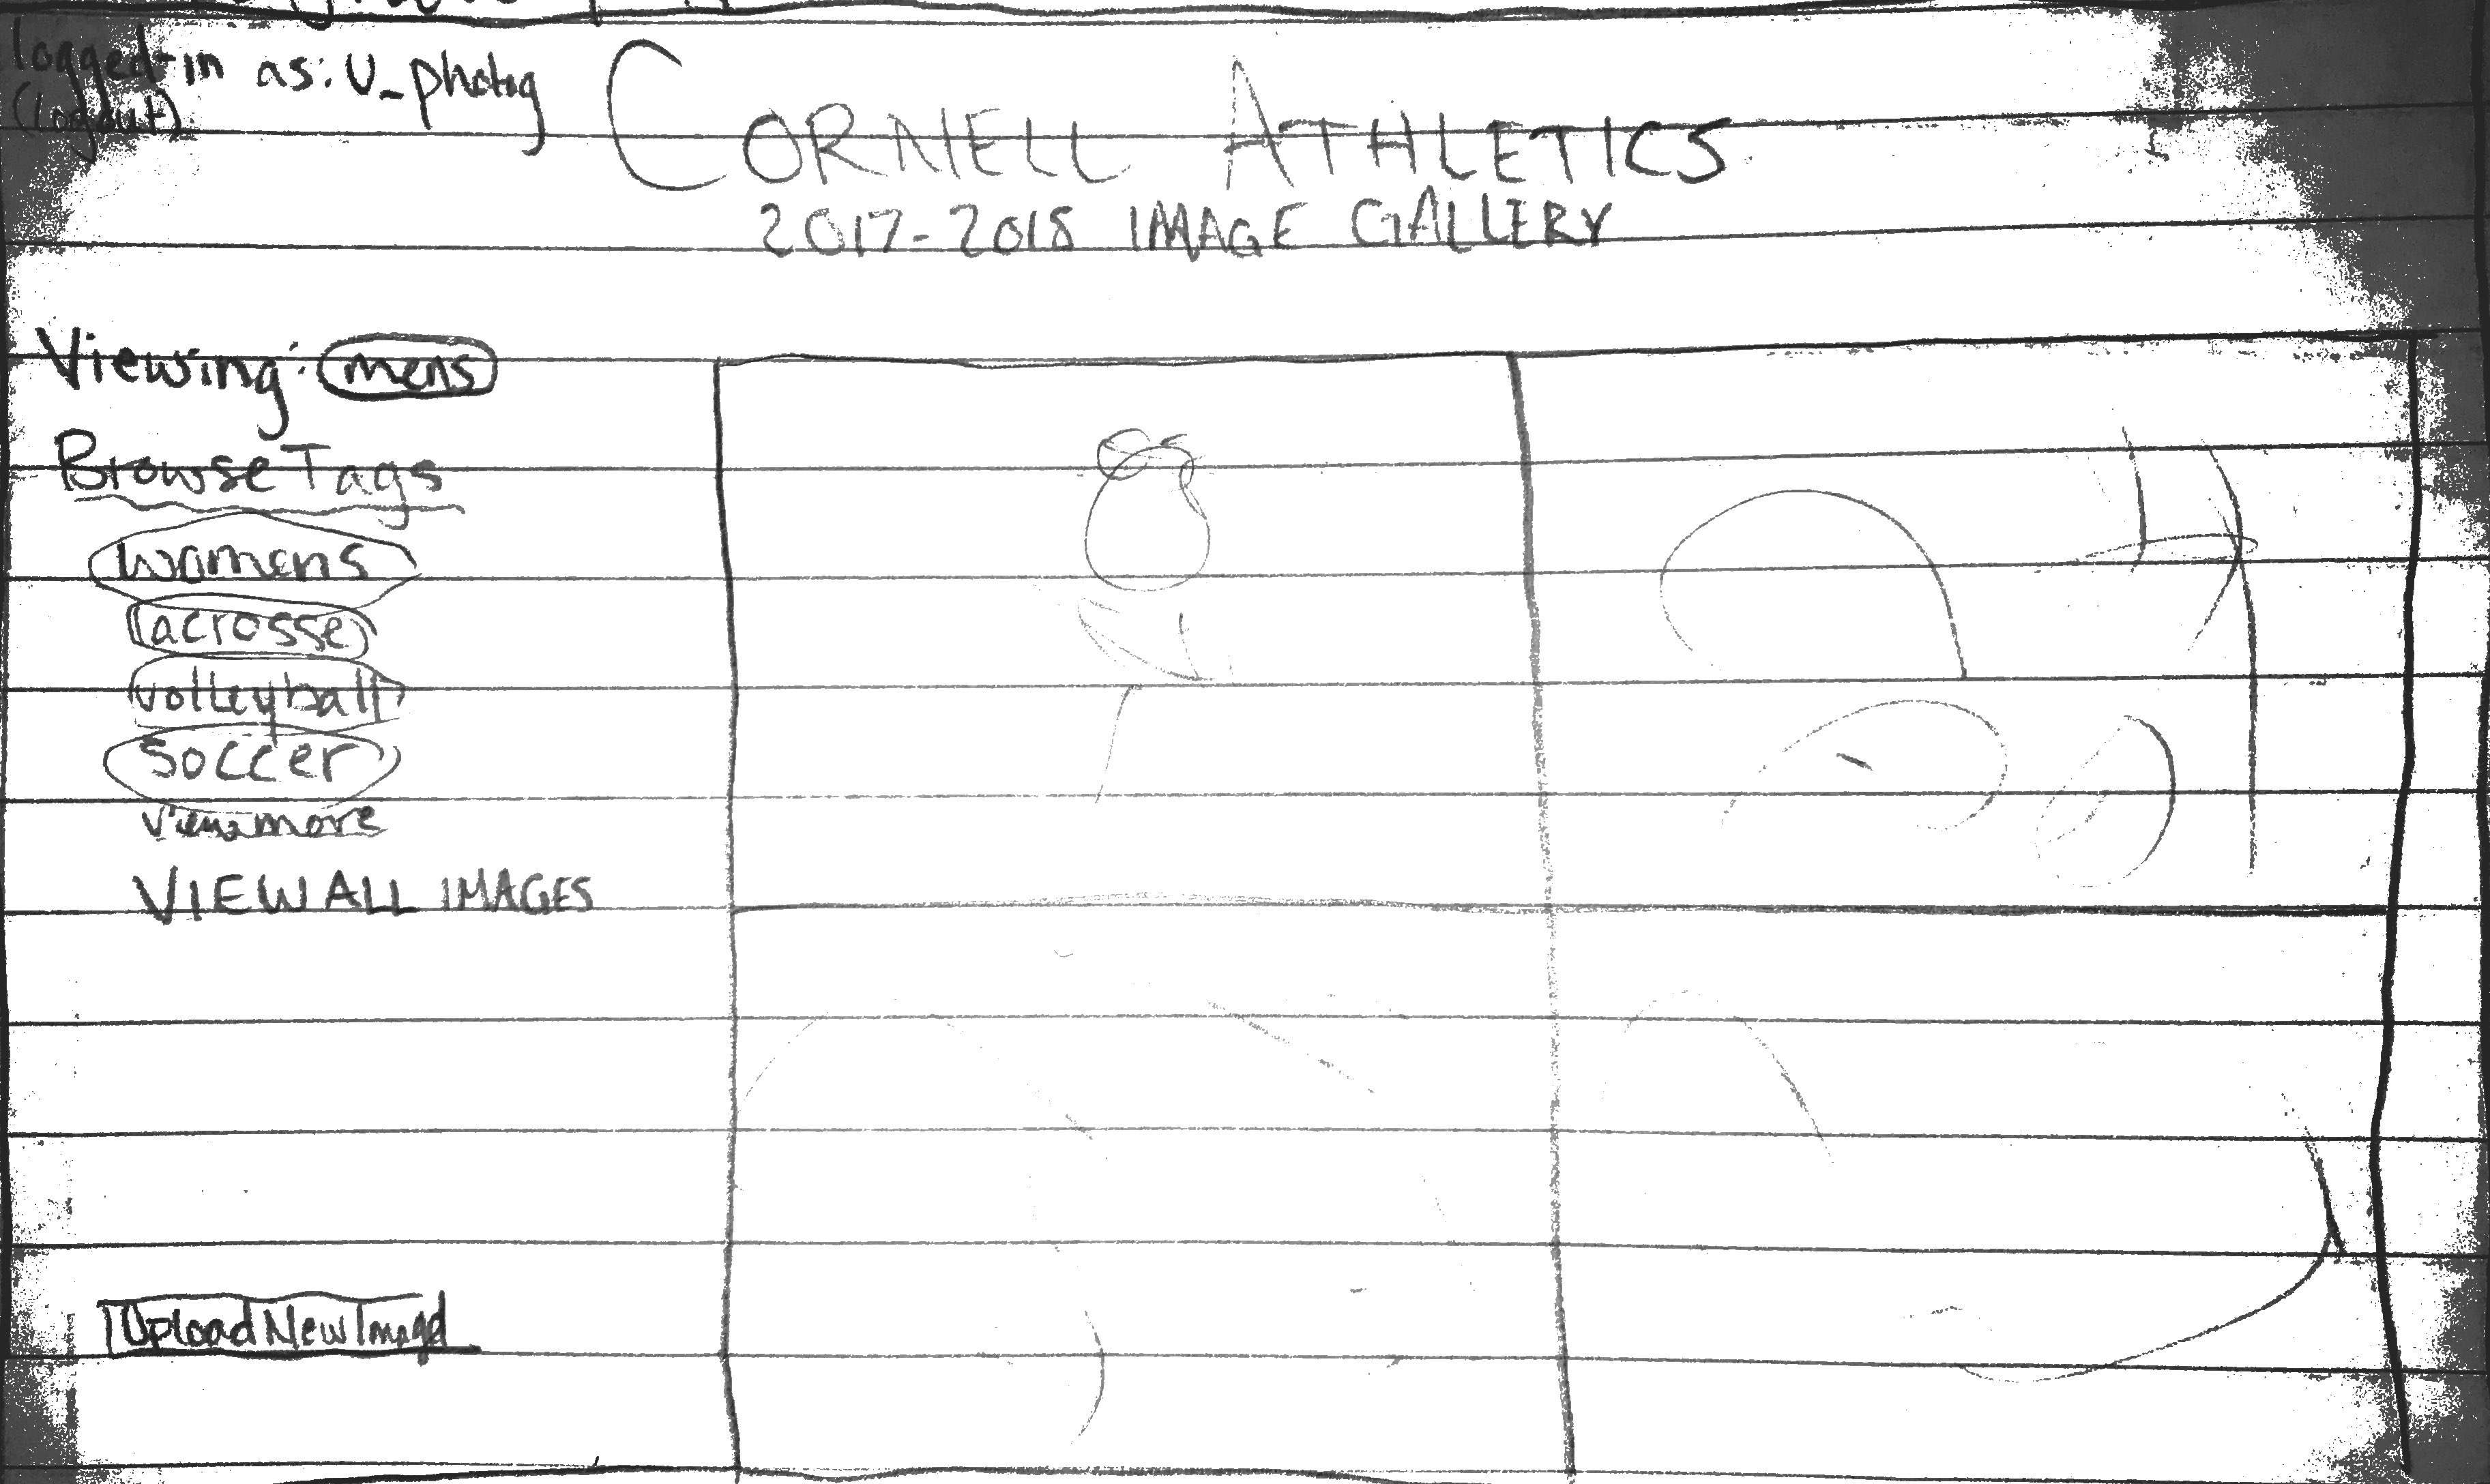 logged-in as: U_photog
(logout)
CORNELL ATHLETICS
2017-2018 IMAGE GALLERY
Viewing: mens
Browse Tags
womens
lacrosse
volleyball
soccer
view more
VIEW ALL IMAGES
Upload New Image